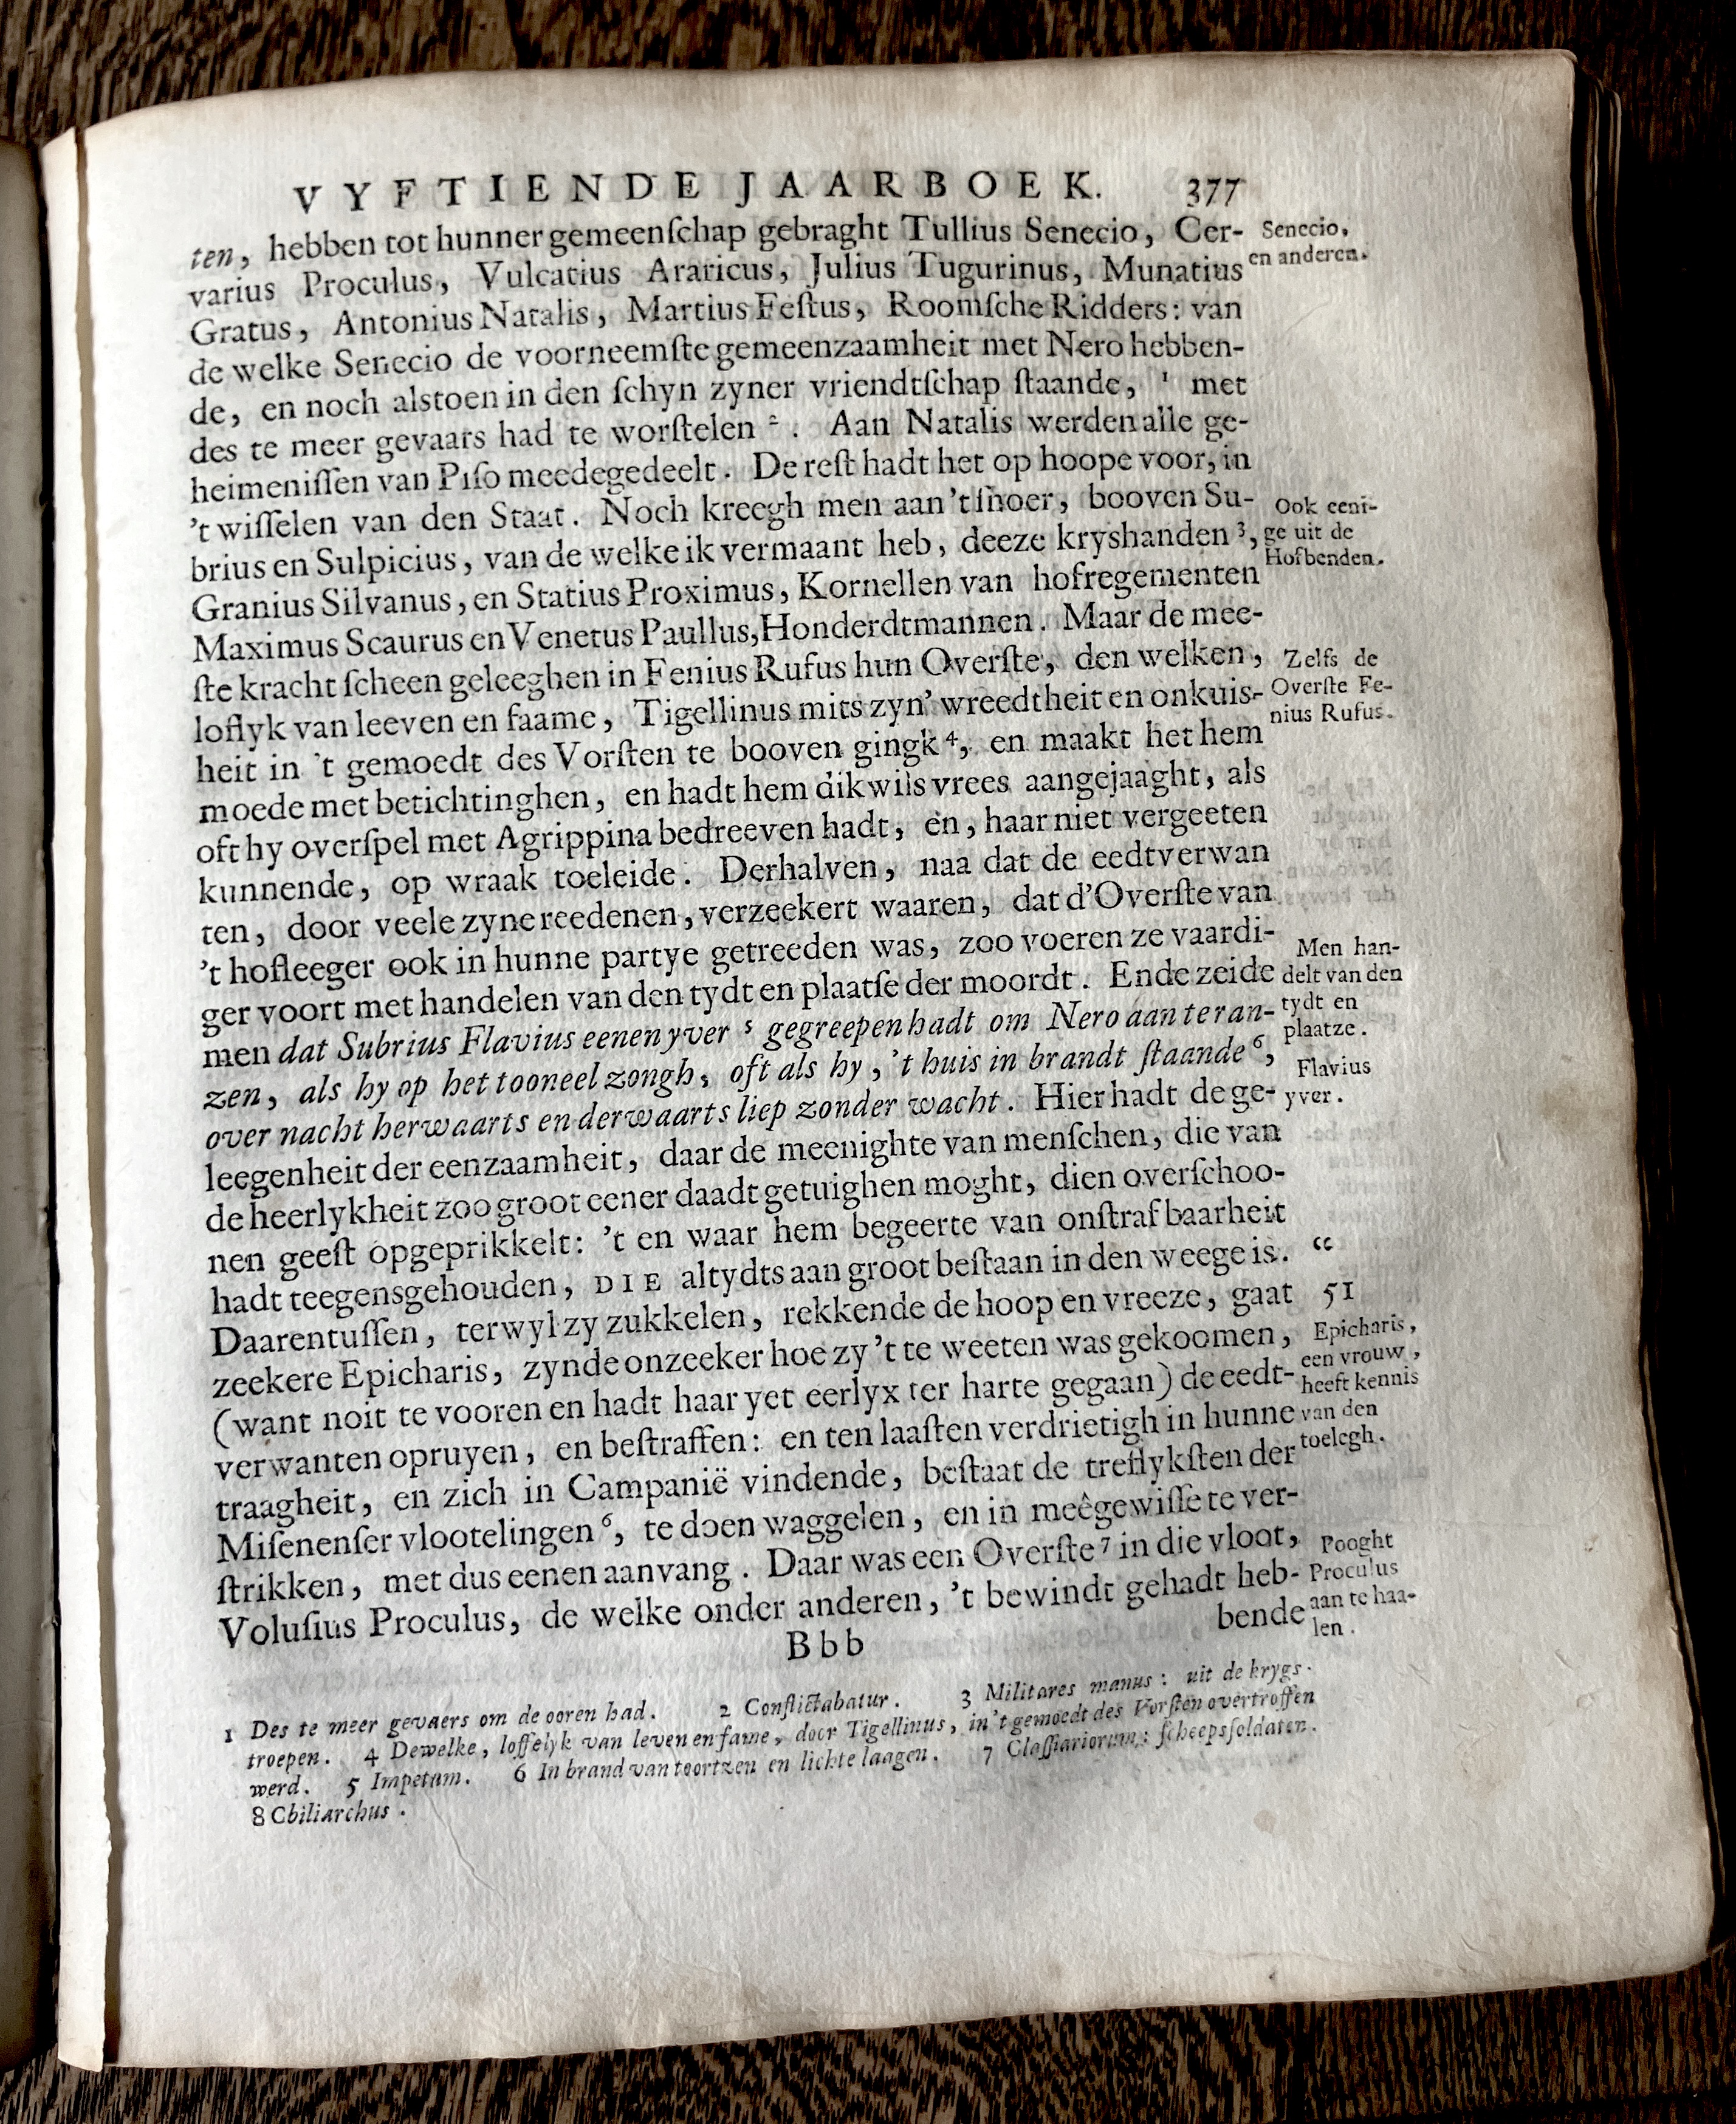 VYFTIENDE JAARBOEK. 377
ten, hebben tot hunner gemeenſchap gebraght Tullius Senecio, Cer-
varius Proculus, Vulcatius Araricus, Julius Tugurinus, Munatius
Gratus, Antonius Natalis, Martius Feſtus, Roomſche Ridders: van
de welke Senecio de voorneemſte gemeenzaamheit met Nero hebben-
de, en noch alstoen in den ſchyn zyner vriendtſchap ſtaande, ¹ met
des te meer gevaars had te worſtelen ². Aan Natalis werden alle ge-
heimeniſſen van Piſo meedegedeelt. De reſt hadt het op hoope voor, in
't wiſſelen van den Staat. Noch kreegh men aan 't ſnoer, booven Su-
brius en Sulpicius, van de welke ik vermaant heb, deeze kryshanden ³,
Granius Silvanus, en Statius Proximus, Kornellen van hofregementen
Maximus Scaurus en Venetus Paullus, Honderdtmannen. Maar de mee-
ſte kracht ſcheen geleeghen in Fenius Rufus hun Overſte, den welken,
loflyk van leeven en faame, Tigellinus mits zyn' wreedtheit en onkuis-
heit in 't gemoedt des Vorſten te booven gingk ⁴, en maakt het hem
moede met betichtinghen, en hadt hem dikwils vrees aangejaaght, als
oft hy overſpel met Agrippina bedreeven hadt, en, haar niet vergeeten
kunnende, op wraak toeleide. Derhalven, naa dat de eedtverwan
ten, door veele zyne reedenen, verzeekert waaren, dat d'Overſte van
't hofleeger ook in hunne partye getreeden was, zoo voeren ze vaardi-
ger voort met handelen van den tydt en plaatſe der moordt. Ende zeide
men dat Subrius Flavius eenen yver ⁵ gegreepen hadt om Nero aan te ran-
zen, als hy op het tooneel zongh, oft als hy, 't huis in brandt ſtaande ⁶,
over nacht herwaarts en derwaarts liep zonder wacht. Hier hadt de ge-
leegenheit der eenzaamheit, daar de meenighte van menſchen, die van
de heerlykheit zoo groot eener daadt getuighen moght, dien overſchoo-
nen geeſt opgeprikkelt: 't en waar hem begeerte van onſtrafbaarheit
hadt teegensgehouden, DIE altydts aan groot beſtaan in den weege is. “
Daarentuſſen, terwyl zy zukkelen, rekkende de hoop en vreeze, gaat 51
zeekere Epicharis, zynde onzeeker hoe zy 't te weeten was gekoomen,
(want noit te vooren en hadt haar yet eerlyx ter harte gegaan) de eedt-
verwanten opruyen, en beſtraffen: en ten laaſten verdrietigh in hunne
traagheit, en zich in Campanië vindende, beſtaat de treflykſten der
Miſenenſer vlootelingen ⁶, te doen waggelen, en in meêgewiſſe te ver-
ſtrikken, met dus eenen aanvang. Daar was een Overſte ⁷ in die vloot,
Voluſius Proculus, de welke onder anderen, 't bewindt gehadt heb-
bende
Bbb
Senecio,
en anderen.
Ook eeni-
ge uit de
Hofbenden.
Zelfs de
Overſte Fe-
nius Rufus.
Men han-
delt van den
tydt en
plaatze.
Flavius
yver.
Epicharis,
een vrouw,
heeft kennis
van den
toelegh.
Pooght
Proculus
aan te haa-
len.
1 Des te meer gevaers om de ooren had. 2 Conflictabatur. 3 Militares manus: uit de krygs-
troepen. 4 Dewelke, loffelyk van leven en fame, door Tigellinus, in 't gemoedt des Vorſten overtroffen
werd. 5 Impetum. 6 In brand van toortzen en lichte laagen. 7 Claſſiariorum: ſcheepsſoldaten.
8 Chiliarchus.